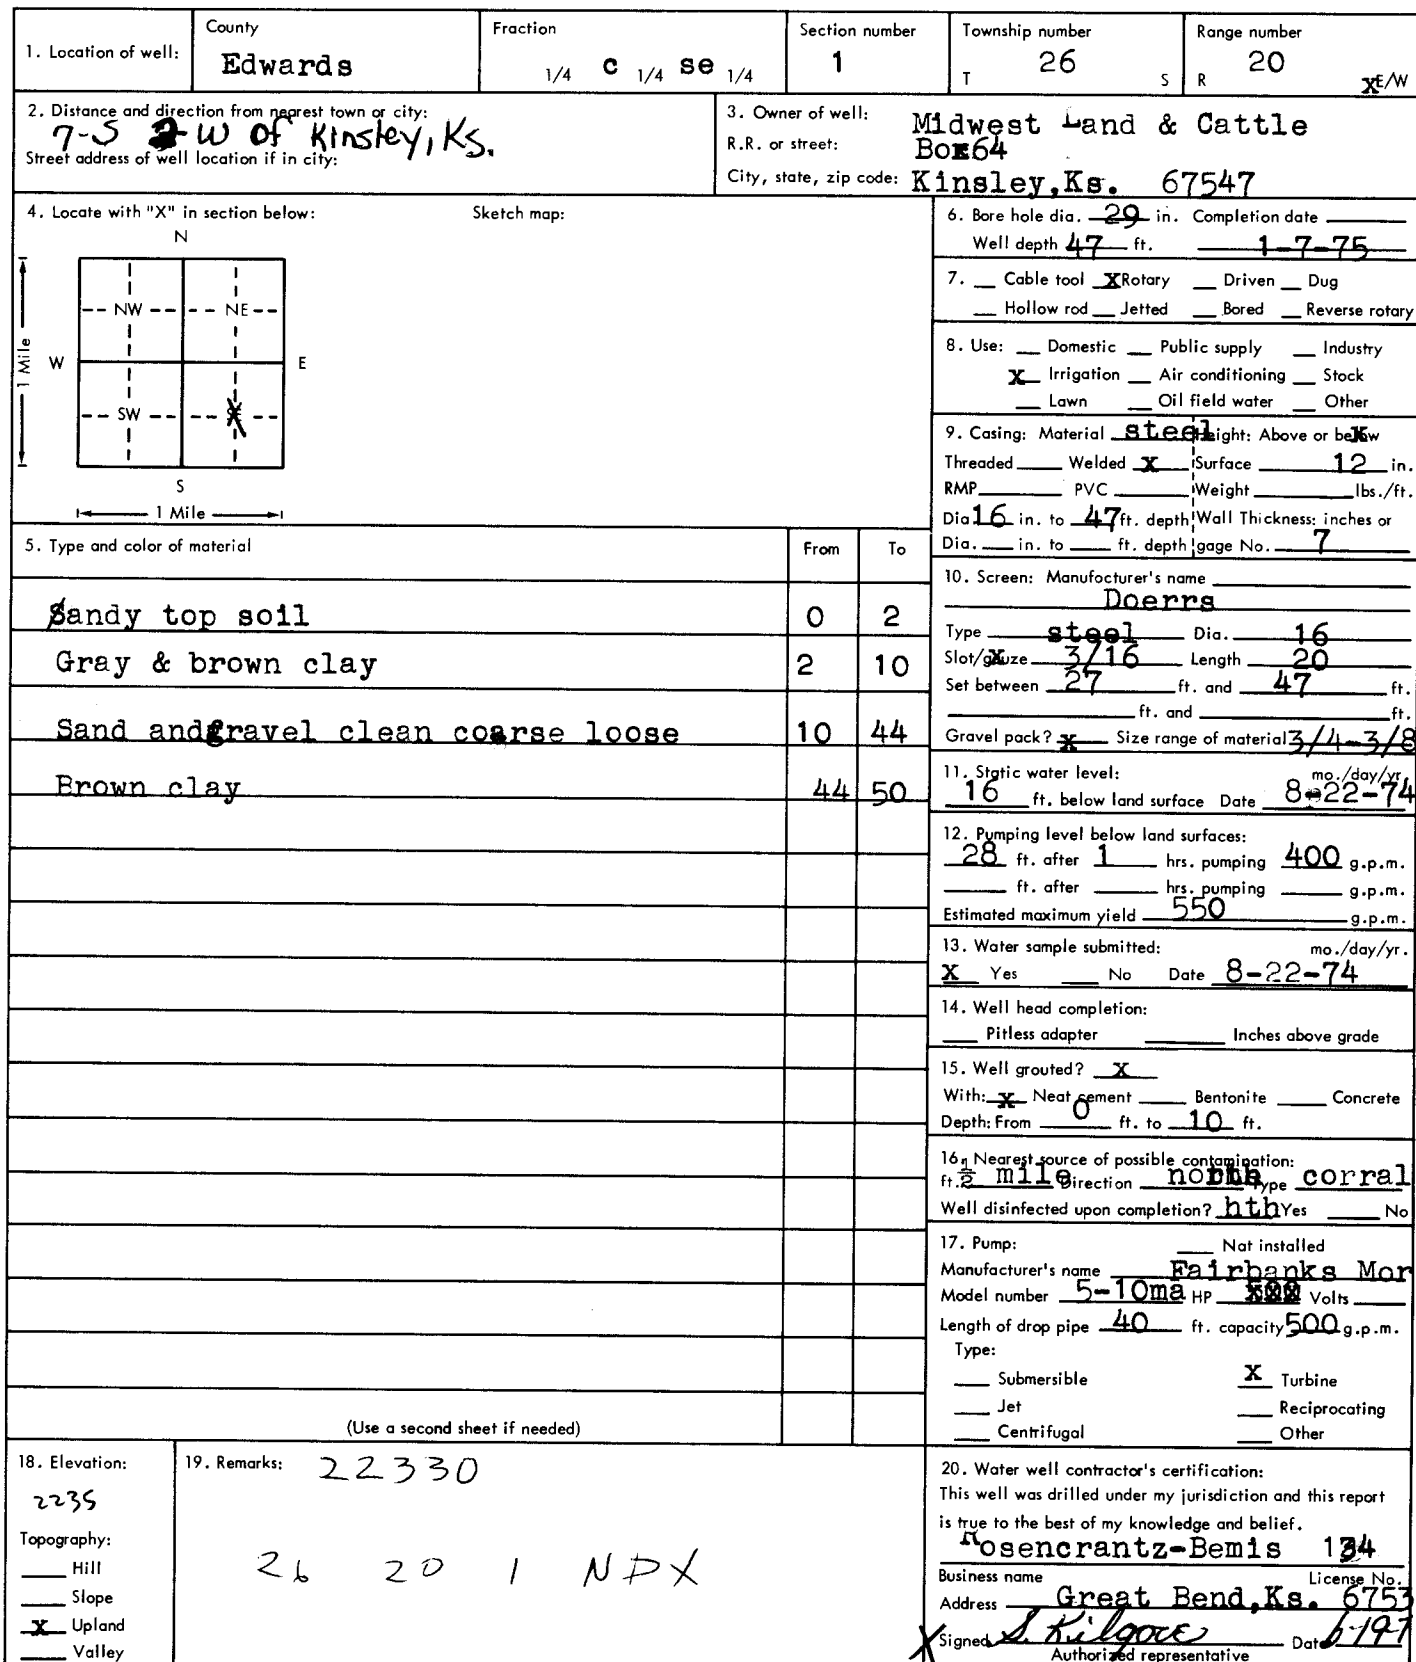 County Fraction Section number Township number Range number
1. Location of well: Edwards 1/4 c 1/4 se 1/4 1 T 26 S R 20 XE/W
2. Distance and direction from nearest town or city:
7-S 2-W of Kinsley, Ks.
Street address of well location if in city:
3. Owner of well: Midwest Land & Cattle
R.R. or street: Box64
City, state, zip code: Kinsley,Ks. 67547
4. Locate with "X" in section below: Sketch map:
N
NW NE
1 Mile W E
SW X
S
1 Mile
5. Type and color of material From To
Sandy top soil 0 2
Gray & brown clay 2 10
Sand andgravel clean coarse loose 10 44
Brown clay 44 50
(Use a second sheet if needed)
6. Bore hole dia. 29 in. Completion date
Well depth 47 ft. 1-7-75
7. __ Cable tool X Rotary __ Driven __ Dug
__ Hollow rod __ Jetted __ Bored __ Reverse rotary
8. Use: __ Domestic __ Public supply __ Industry
X Irrigation __ Air conditioning __ Stock
__ Lawn __ Oil field water __ Other
9. Casing: Material steel Height: Above or below
Threaded __ Welded X Surface 12 in.
RMP __ PVC __ Weight __ lbs./ft.
Dia 16 in. to 47 ft. depth Wall Thickness: inches or
Dia. __ in. to __ ft. depth gage No. 7
10. Screen: Manufacturer's name
Doerrs
Type steel Dia. 16
Slot/gauze 3/16 Length 20
Set between 27 ft. and 47 ft.
__ ft. and __ ft.
Gravel pack? X Size range of material 3/4-3/8
11. Static water level: mo./day/yr.
16 ft. below land surface Date 8-22-74
12. Pumping level below land surfaces:
28 ft. after 1 hrs. pumping 400 g.p.m.
__ ft. after __ hrs. pumping __ g.p.m.
Estimated maximum yield 550 g.p.m.
13. Water sample submitted: mo./day/yr.
X Yes __ No Date 8-22-74
14. Well head completion:
__ Pitless adapter __ Inches above grade
15. Well grouted? X
With: X Neat cement __ Bentonite __ Concrete
Depth: From 0 ft. to 10 ft.
16. Nearest source of possible contamination:
ft. 1/2 mile Direction north Type corral
Well disinfected upon completion? hth Yes __ No
17. Pump: __ Not installed
Manufacturer's name Fairbanks Mor
Model number 5-10ma HP Volts
Length of drop pipe 40 ft. capacity 500 g.p.m.
Type:
__ Submersible X Turbine
__ Jet __ Reciprocating
__ Centrifugal __ Other
18. Elevation:
2235
Topography:
__ Hill
__ Slope
X Upland
__ Valley
19. Remarks: 22330
26 20 1 NDX
20. Water well contractor's certification:
This well was drilled under my jurisdiction and this report
is true to the best of my knowledge and belief.
Rosencrantz-Bemis 134
Business name License No.
Address Great Bend,Ks. 6753
Signed S. Kilgore Date
Authorized representative